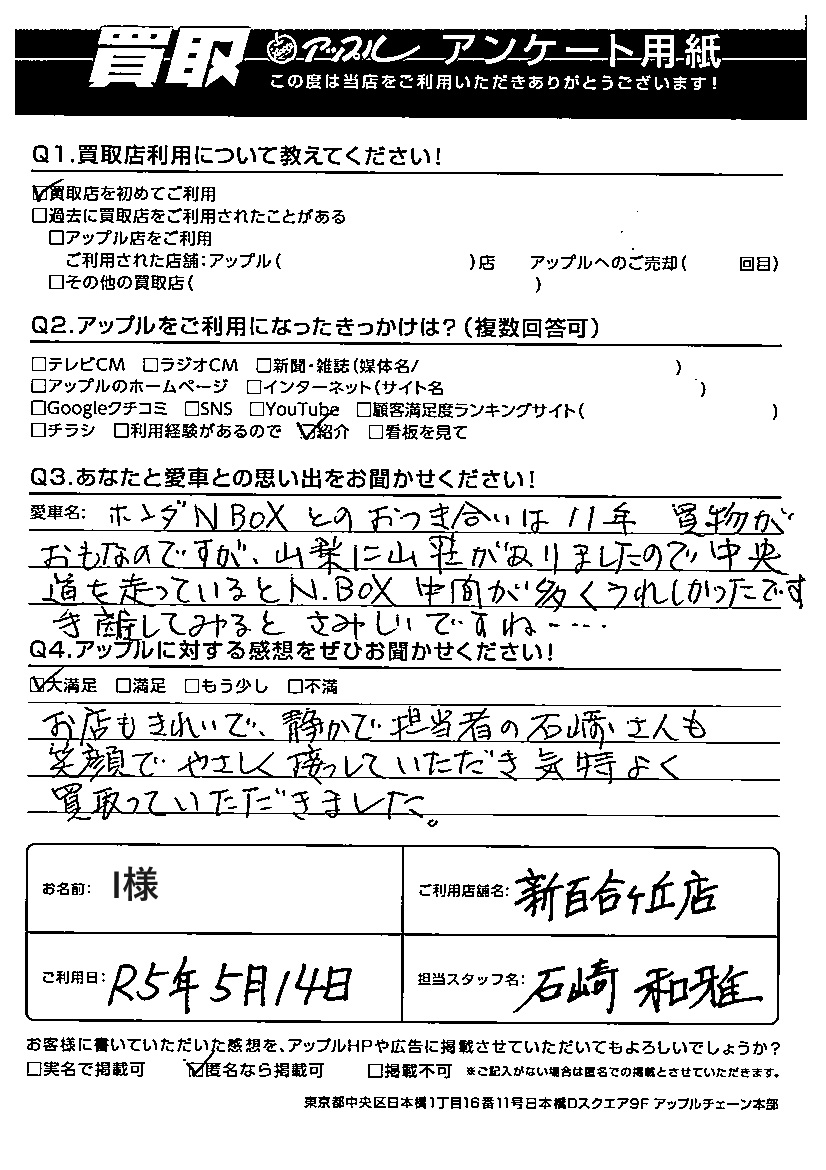 買取 アップル アンケート用紙
この度は当店をご利用いただきありがとうございます！
Q1.買取店利用について教えてください！
☑買取店を初めてご利用
□過去に買取店をご利用されたことがある
□アップル店をご利用
ご利用された店舗：アップル（　）店　アップルへのご売却（　回目）
□その他の買取店（　）
Q2.アップルをご利用になったきっかけは？（複数回答可）
□テレビCM □ラジオCM □新聞・雑誌（媒体名/　）
□アップルのホームページ □インターネット（サイト名　）
□Googleクチコミ □SNS □YouTube □顧客満足度ランキングサイト（　）
□チラシ □利用経験があるので ☑紹介 □看板を見て
Q3.あなたと愛車との思い出をお聞かせください！
愛車名: ホンダN BOX とのおつき合いは 11年 買物が
おもなのですが、山梨に山荘がありましたので中央
道を走っているとN.BOX 中間が多くうれしかったです
手離してみると さみしいですね-----
Q4.アップルに対する感想をぜひお聞かせください！
☑大満足 □満足 □もう少し □不満
お店もきれいで、静かで担当者の石崎さんも
笑顔で やさしく接っしていただき気持よく
買取っていただきました。
お名前: I様
ご利用店舗名: 新百合ヶ丘店
ご利用日: R5年5月14日
担当スタッフ名: 石崎 和雅
お客様に書いていただいた感想を、アップルHPや広告に掲載させていただいてもよろしいでしょうか？
□実名で掲載可 ☑匿名なら掲載可 □掲載不可 ※ご記入がない場合は匿名での掲載とさせていただきます。
東京都中央区日本橋1丁目16番11号日本橋Dスクエア9F アップルチェーン本部